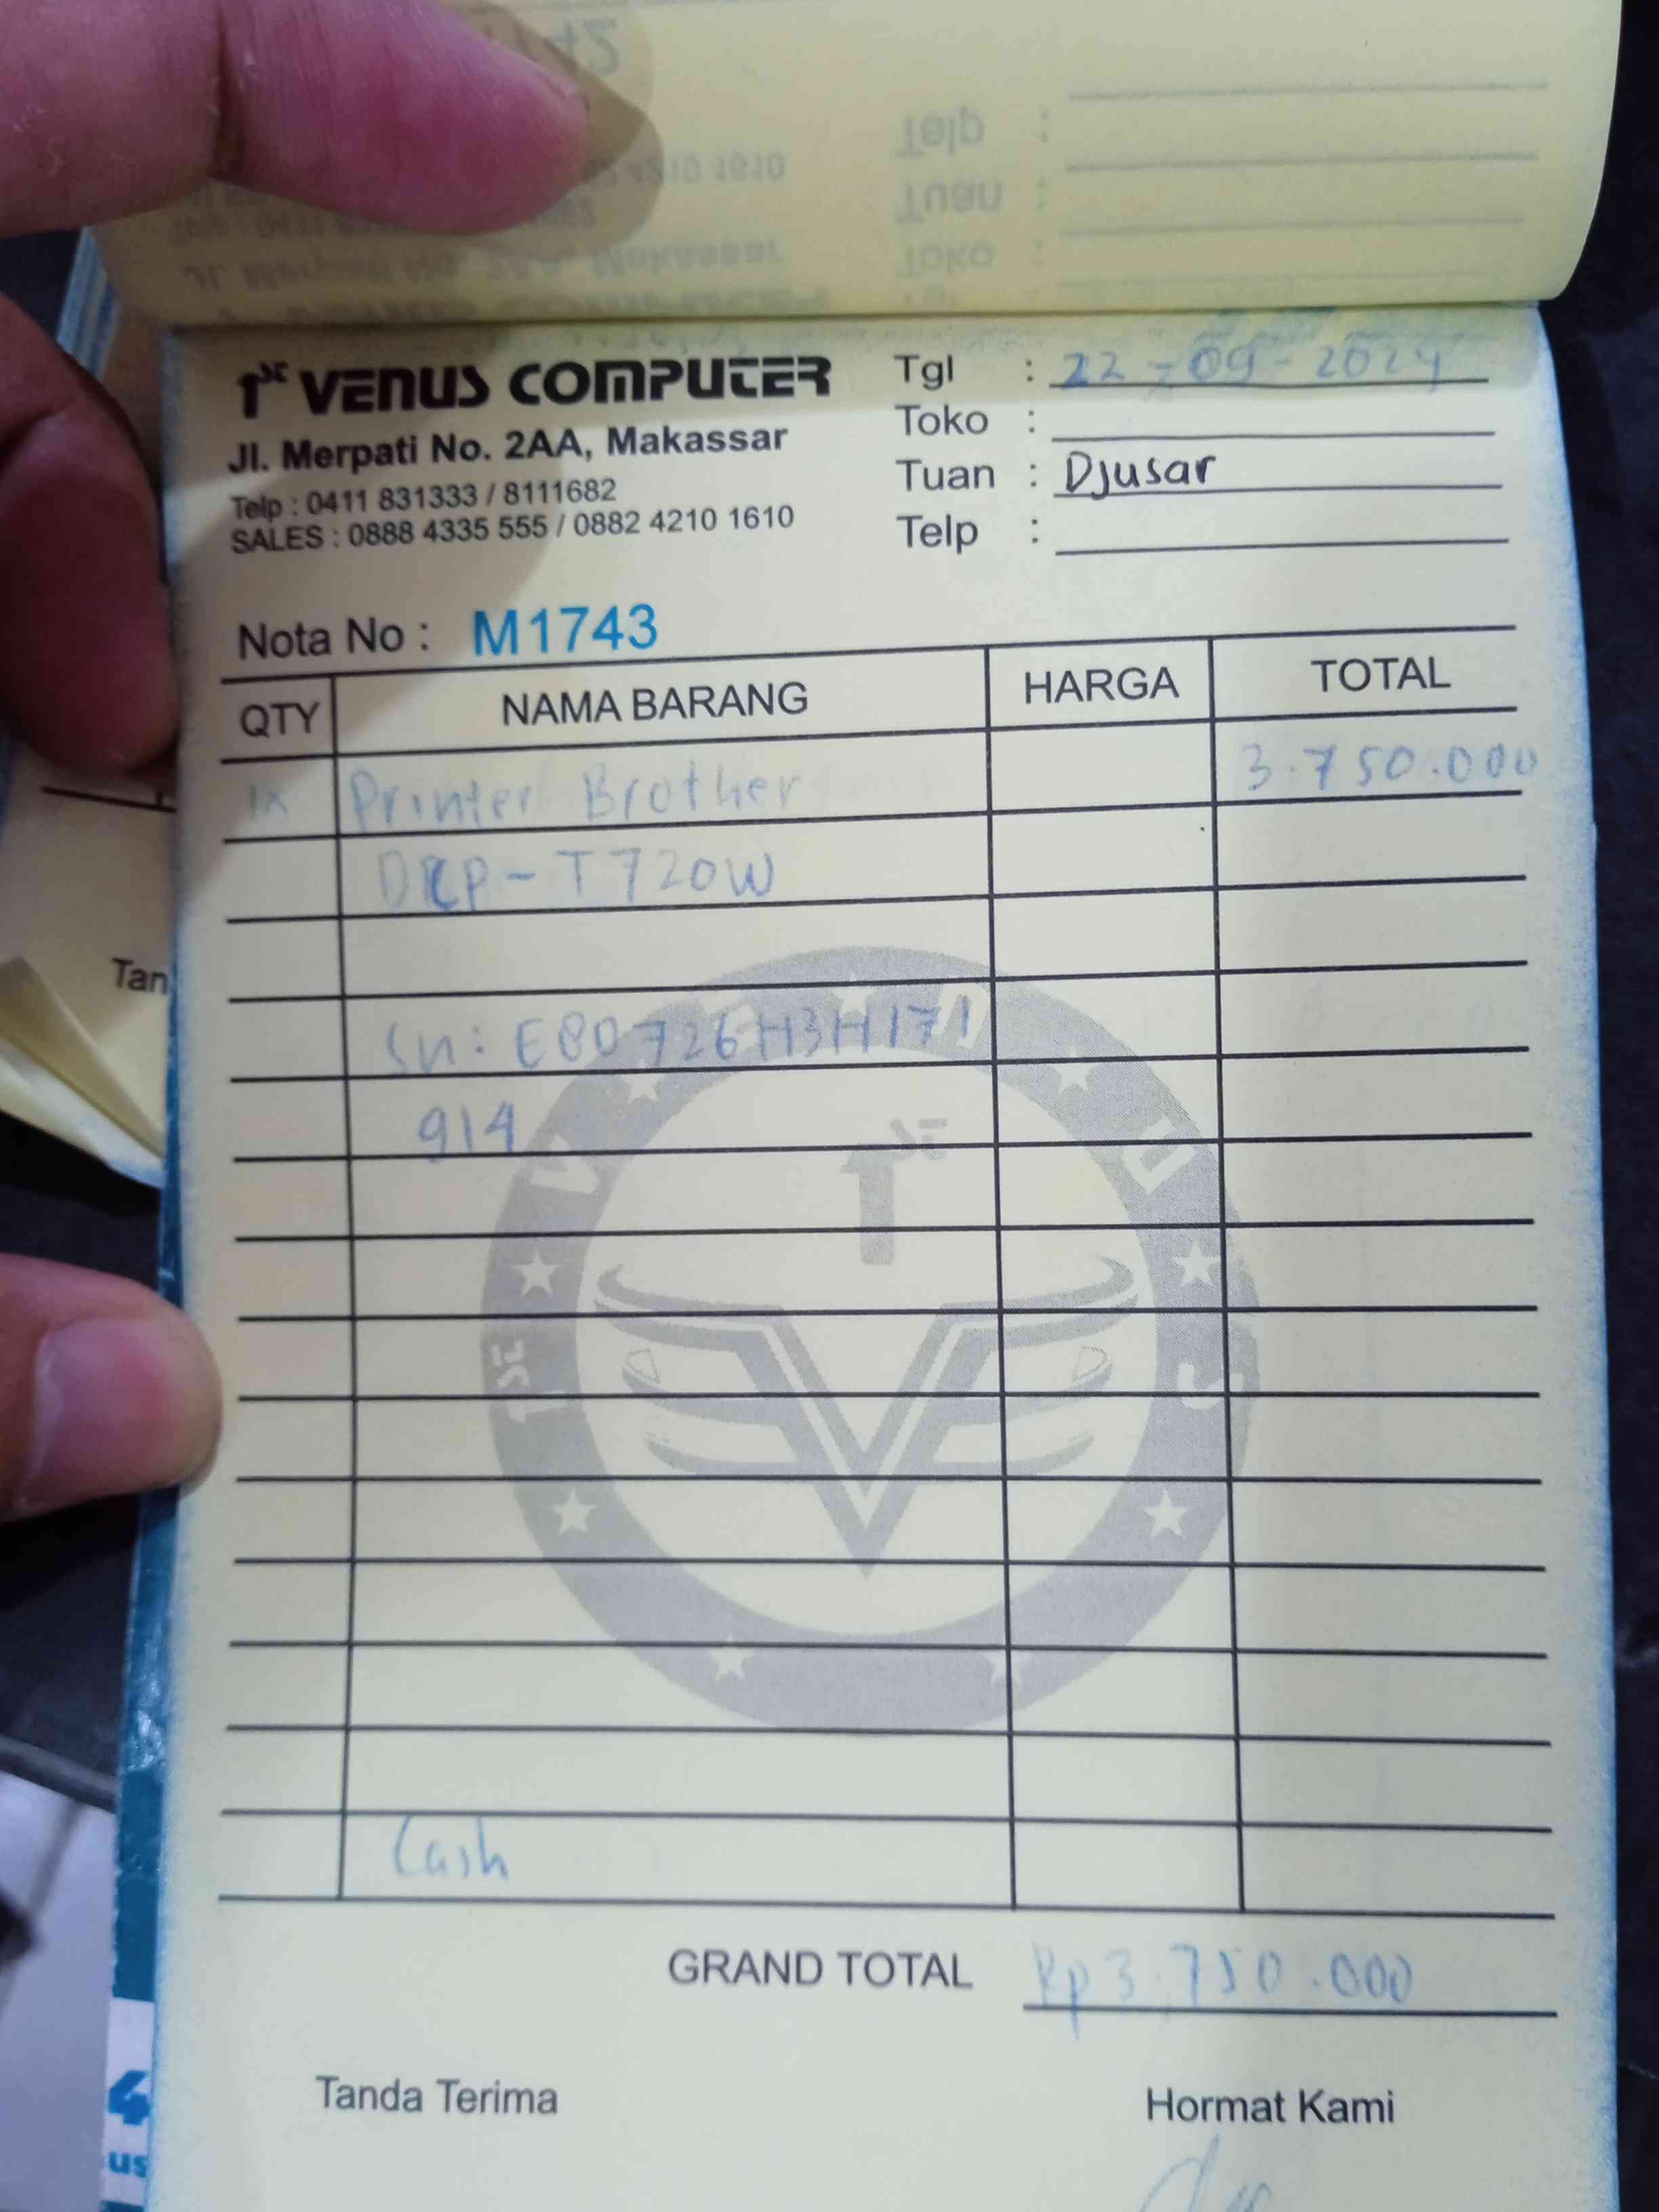 1st VENUS COMPUTER
Jl. Merpati No. 2AA, Makassar
Telp : 0411 831333 / 8111682
SALES : 0888 4335 555 / 0882 4210 1610
Tgl : 22-09-2024
Toko :
Tuan : Djusar
Telp :
Nota No : M1743
QTY NAMA BARANG HARGA TOTAL
1x Printer Brother 3.750.000
DCP-T720W
SN: E80726H3H171
914
1st VENUS
Cash
GRAND TOTAL Rp3.750.000
Tanda Terima Hormat Kami